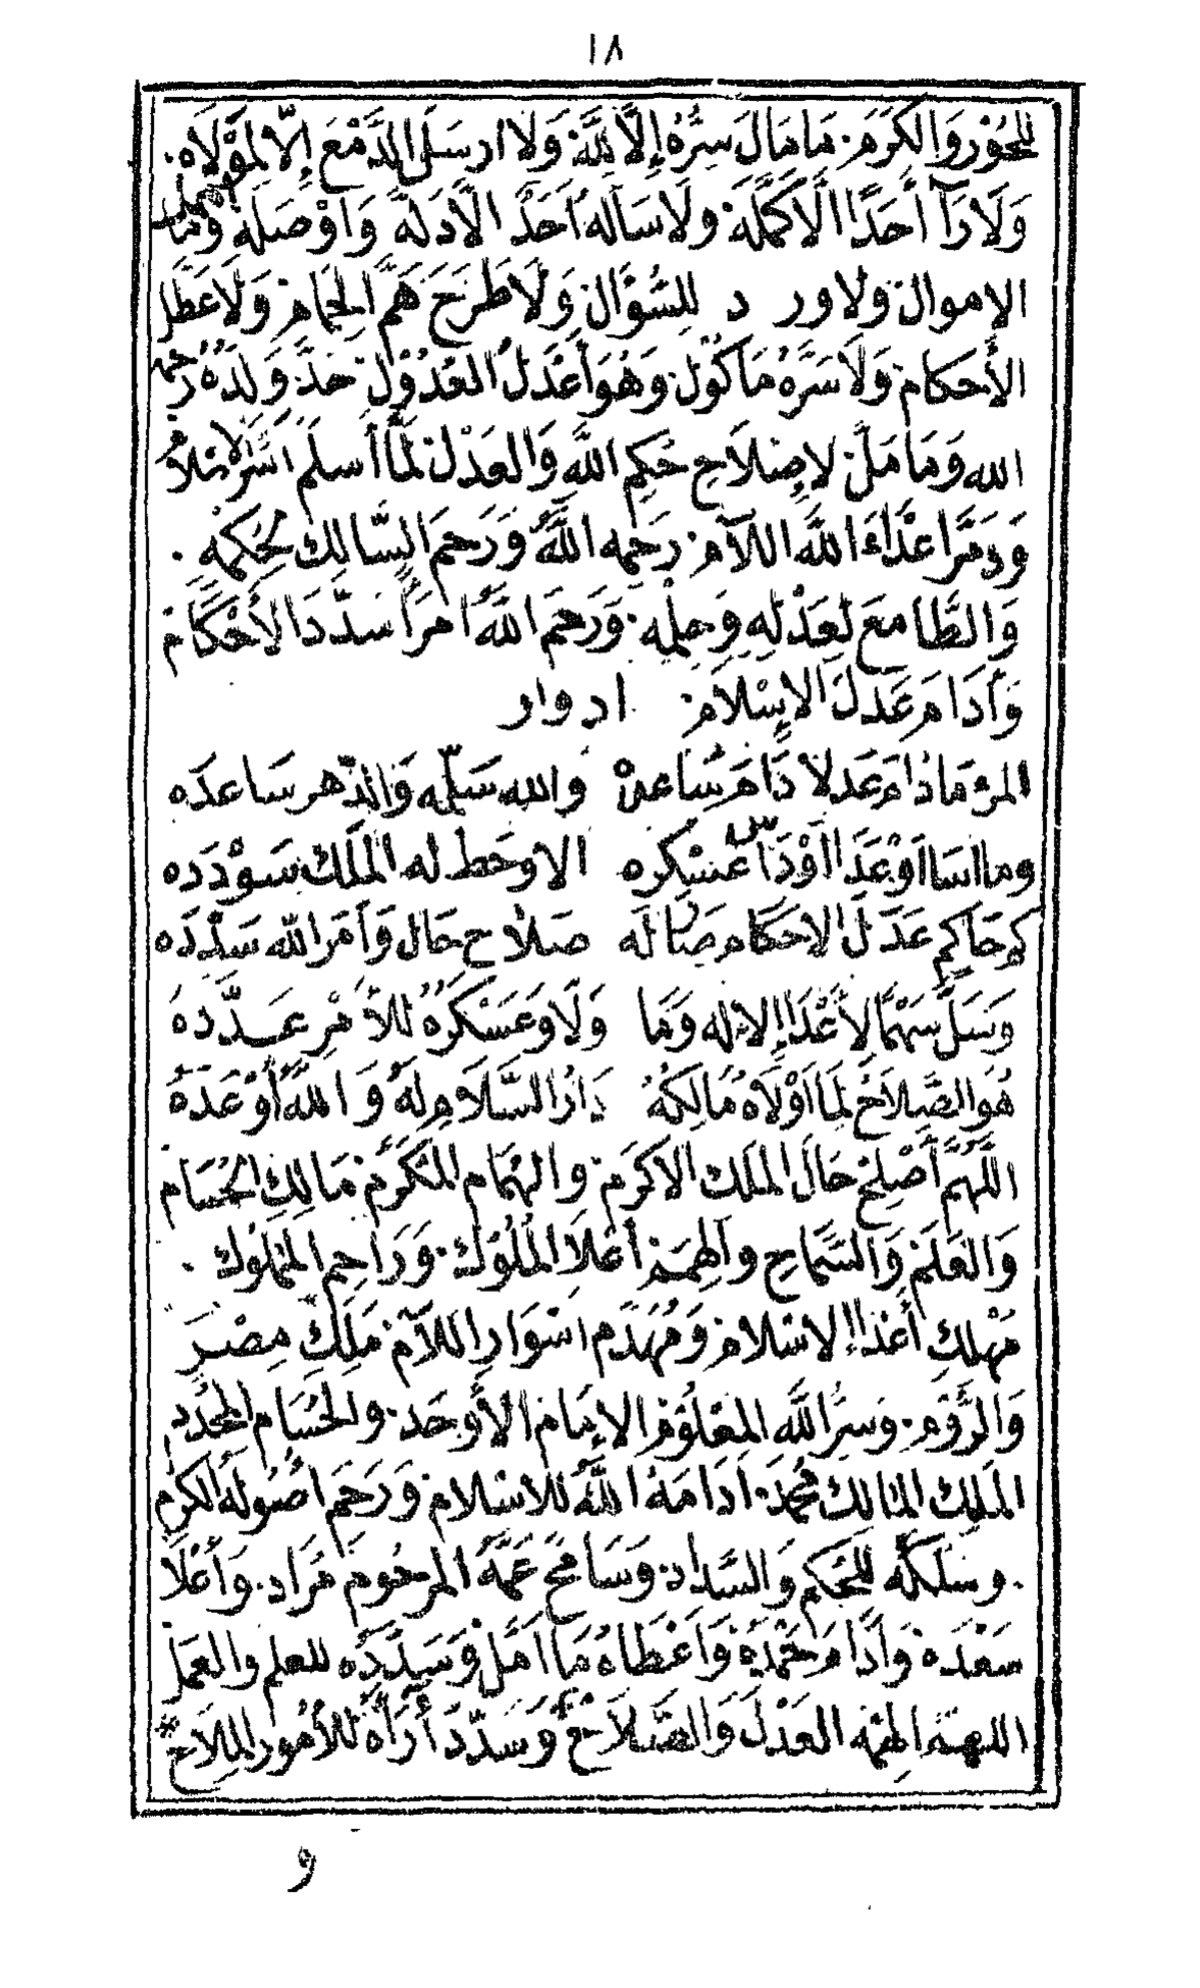 ١٨
للحُوْر وَالكَرَم. مَا مَالَ سِرُّهُ إِلَّا لِلَّهِ وَلَا ارسَلَ الدَّمْعَ إِلّا لِمَوْلَاه.
وَلَا رَآ أَحَدًا الَّا كَمَّلَهُ ولَا سَالَهُ أَحَدٌ الَّا دَلَّهُ وَأَوْصَلَهُ وَمَا أمّل
الاموال ولا ورد للسُّؤَالِ وَلَا طَرَحَ هَمَّ الحِمَامِ وَلَا عَطَّلَ
الأَحكام وَلَا سَرَّهُ مَأكُول وَهُوَ أَعْدَلُ العُدُوْلِ حَدَّ وَلَدَهُ رَحمه
الله وَمَا مَلَّ لاِصْلَاحِ حُكمِ اللهِ وَالعَدْل لَمَّا أَسلَمَ اسَّرَ الاسْلَامُ
وَدَمَّرَ اعْدَاءَ اللَّهِ اللآم. رَحِمَه اللَّهُ وَرَحِمَ السَّالِكَ لحُكمِهِ.
وَالطَّامعَ لعَدْلِهِ وَحِلْمِه. وَرَحِمَ اللَّهُ امرَأً سَدَّدَ الأَحْكَامَ
وَأَدَامَ عَدلَ الإِسْلَامِ. ادوار
المرْ مَا دَامَ عَدلا دَامَ سَاعدهْ والله سَلّمه وَالدّهر سَاعدَه
وما اسَا اوْ عَدَا اوْ دَاسَ عَسْكره الا وحَط له المَلَك سَوْدَده
كم حَاكِم عَدَلَ الاحكام صَار لَه صَلَاح حَال وَأَمَر الله سَدّدَه
وَسَلَّ سَهْمًا لأَعْدَا إلاله وَمَا وَلَا وَعَسْكَرُهُ للأَمْر عَدَّدَهُ
هُوَ الصَّلَاحُ لِمَا أَوْلَاهُ مَالِكُهُ دَارُ السَّلَامِ لَهُ وَاللَّهُ أَوْعَدَهُ
اللَّهُمَّ أَصْلِحْ حَالَ المَلَك الاكرَم والهُمَام المُكَرَّم مَالِكِ الحُسَام
وَالعَلَم وَالسَّمَاحِ والهِمَم أَعْلَا المُلُوك. وَرَاحِم المَمْلُوك.
مُهْلِكِ أَعْدَا الاسْلَام وَمُهَدِّم اسْوَارِ اللآم مَلِكِ مِصْرَ
وَالرُّوم. وَسِرُّ اللَّه المَعْلُوم الإِمَام الأَوْحَد. والحُسَام المُحَدَّد
المَلِك المَالك مُحَمَّد. ادَامَهُ اللَّهُ للاسْلَام وَرَحِمَ اصُولَهُ الكرَام
. وسَلَكَهُ للحُكمِ وَالسَّدَاد. وَسَامَحَ عَمَّهُ المرحُوم مُرَاد. وَأَعْلَا
سَعْدَهُ وَأَدَامَ حَمْدَهُ وَأَعْطَاهُ مَا أَمَّلْ وَسَدَّدَه للعلم والعمَل
اللهم الهِمْه العَدْلَ وَالصَّلَاحْ وَسَدِّدَ أرَآهُ للأُمُورِ المِلَاحْ *
و